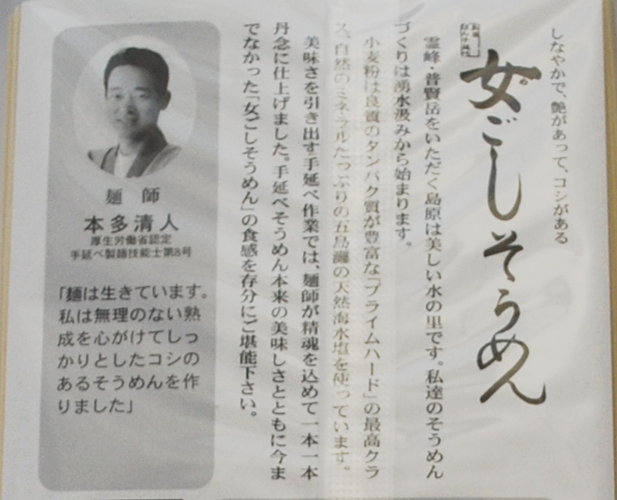 しなやかで、艶があって、コシがある
女ごしそうめん
霊峰・普賢岳をいただく島原は美しい水の里です。私達のそうめん
づくりは湧水汲みから始まります。
小麦粉は良質のタンパク質が豊富な「プライムハード」の最高クラ
ス、自然のミネラルたっぷりの五島灘の天然海水塩を使っています。
美味さを引き出す手延べ作業では、麺師が精魂を込めて一本一本
丹念に仕上げました。手延べそうめん本来の美味しさとともに今ま
でなかった「女ごしそうめん」の食感を存分にご堪能下さい。
麺 師
本多清人
厚生労働省認定
手延べ製麺技能士第8号
「麺は生きています。
私は無理のない熟
成を心がけてしっ
かりとしたコシの
あるそうめんを作
りました」